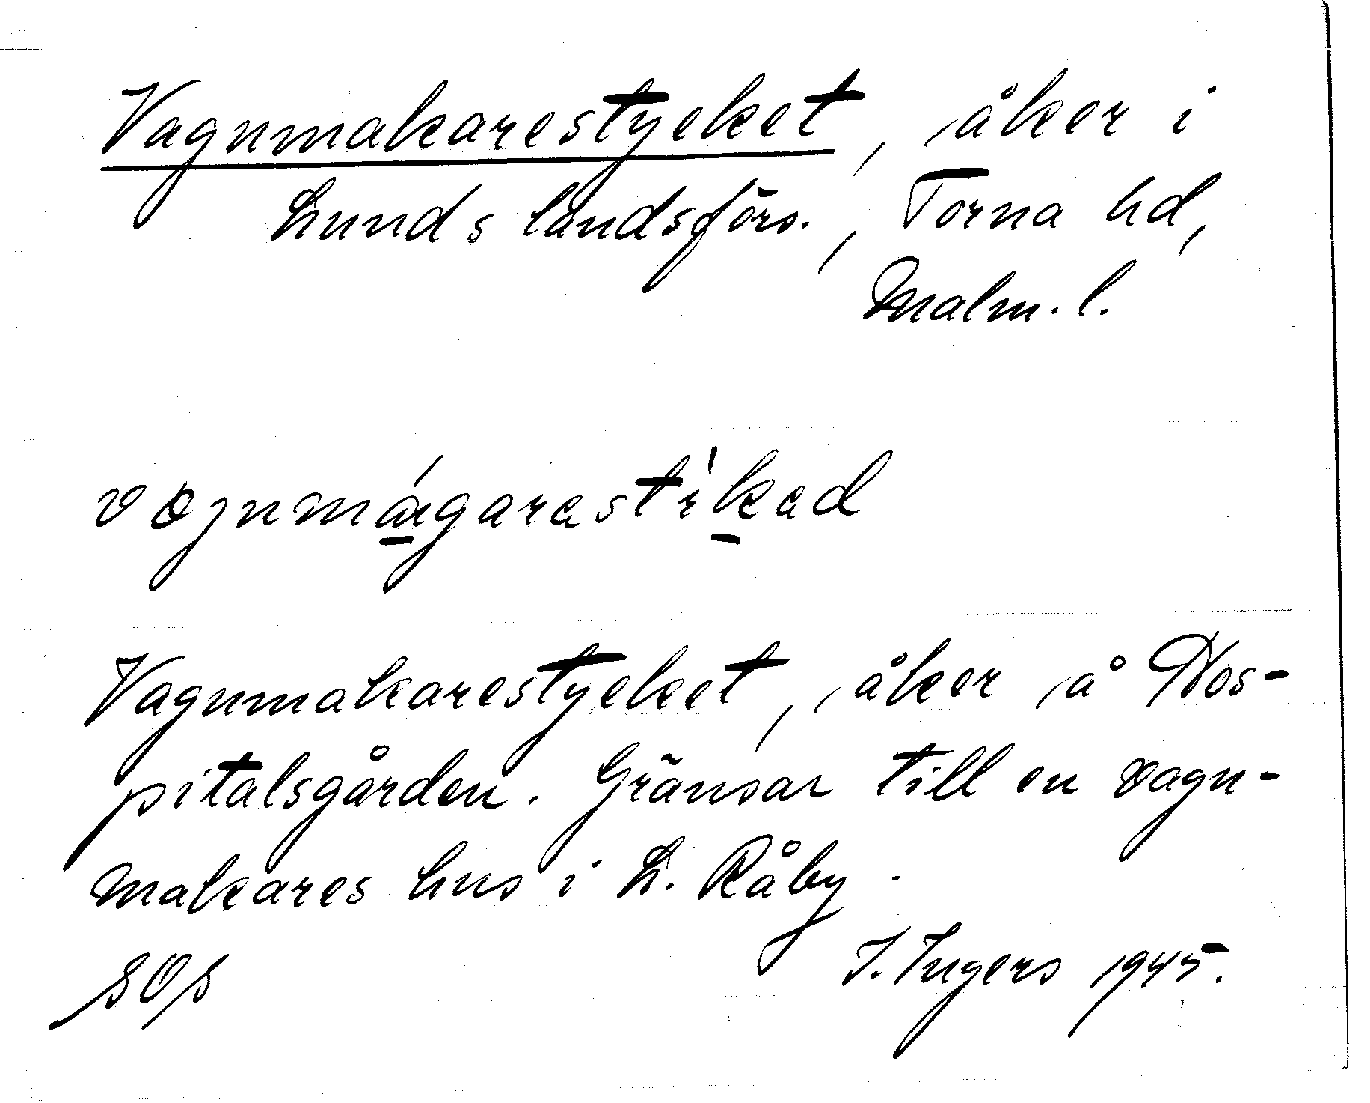 Vagnmakarestycket, åker i
Lunds landsförs., Torna hd,
Malm. l.
vognmágarastìkad
Vagnmakarestycket, åker å Hos-
pitalsgården. Gränsar till en vagn-
makares hus i L. Råby.
SOS I. Ingers 1945.